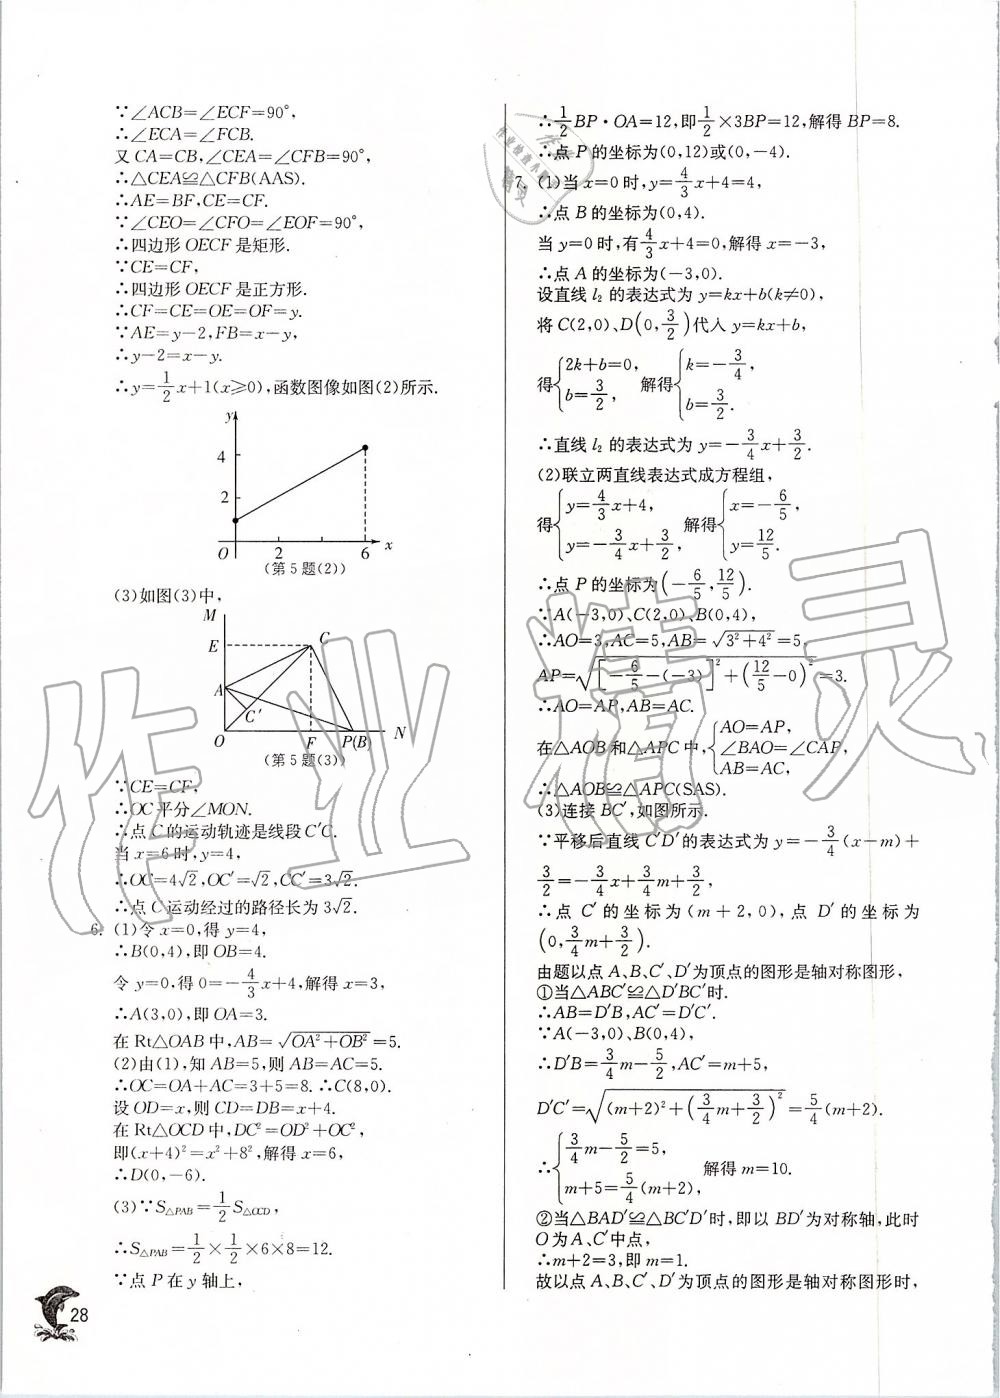 ∵∠ACB=∠ECF=90°,
∴∠ECA=∠FCB.
又 CA=CB,∠CEA=∠CFB=90°,
∴△CEA≌△CFB(AAS).
∴AE=BF,CE=CF.
∵∠CEO=∠CFO=∠EOF=90°,
∴四边形 OECF 是矩形.
∵CE=CF,
∴四边形 OECF 是正方形.
∴CF=CE=OE=OF=y.
∵AE=y-2,FB=x-y,
∴y-2=x-y.
∴y=1/2 x+1(x≥0),函数图像如图(2)所示.
y
4
2
O 2 6 x
(第 5 题(2))
(3)如图(3)中,
M
E C
A
C′
O F P(B) N
(第 5 题(3))
∵CE=CF,
∴OC平分∠MON.
∴点 C 的运动轨迹是线段 C′C.
当 x=6 时,y=4,
∴OC=4√2,OC′=√2,CC′=3√2.
∴点 C 运动经过的路径长为 3√2.
6. (1)令 x=0,得 y=4,
∴B(0,4),即 OB=4.
令 y=0,得 0=-4/3 x+4,解得 x=3,
∴A(3,0),即 OA=3.
在 Rt△OAB 中,AB=√(OA²+OB²)=5.
(2)由(1),知 AB=5,则 AB=AC=5.
∴OC=OA+AC=3+5=8. ∴C(8,0).
设 OD=x,则 CD=DB=x+4.
在 Rt△OCD 中,DC²=OD²+OC²,
即(x+4)²=x²+8²,解得 x=6,
∴D(0,-6).
(3)∵S△PAB=1/2 S△OCD,
∴S△PAB=1/2×1/2×6×8=12.
∵点 P 在 y 轴上,
28
∴1/2 BP·OA=12,即1/2×3BP=12,解得 BP=8.
∴点 P 的坐标为(0,12)或(0,-4).
7. (1)当 x=0 时,y=4/3 x+4=4,
∴点 B 的坐标为(0,4).
当 y=0 时,有4/3 x+4=0,解得 x=-3,
∴点 A 的坐标为(-3,0).
设直线 l₂ 的表达式为 y=kx+b(k≠0),
将 C(2,0)、D(0,3/2)代入 y=kx+b,
得{2k+b=0, b=3/2, 解得{k=-3/4, b=3/2.
∴直线 l₂ 的表达式为 y=-3/4 x+3/2.
(2)联立两直线表达式成方程组,
得{y=4/3 x+4, y=-3/4 x+3/2, 解得{x=-6/5, y=12/5.
∴点 P 的坐标为(-6/5,12/5).
∵A(-3,0)、C(2,0)、B(0,4),
∴AO=3,AC=5,AB=√(3²+4²)=5,
AP=√([-6/5-(-3)]²+(12/5-0)²)=3.
∴AO=AP,AB=AC.
在△AOB 和△APC 中,{AO=AP, ∠BAO=∠CAP, AB=AC,
∴△AOB≌△APC(SAS).
(3)连接 BC′,如图所示.
∵平移后直线 C′D′的表达式为 y=-3/4(x-m)+
3/2=-3/4 x+3/4 m+3/2,
∴点 C′ 的坐标为(m+2,0),点 D′ 的坐标为
(0,3/4 m+3/2).
由题以点 A、B、C′、D′为顶点的图形是轴对称图形,
①当△ABC′≌△D′BC′时.
∴AB=D′B,AC′=D′C′.
∵A(-3,0)、B(0,4),
∴D′B=3/4 m-5/2,AC′=m+5,
D′C′=√((m+2)²+(3/4 m+3/2)²)=5/4(m+2).
∴{3/4 m-5/2=5, m+5=5/4(m+2), 解得 m=10.
②当△BAD′≌△BC′D′时,即以 BD′为对称轴,此时
O为 A、C′中点,
∴m+2=3,即 m=1.
故以点 A、B、C′、D′为顶点的图形是轴对称图形时,
作业精灵